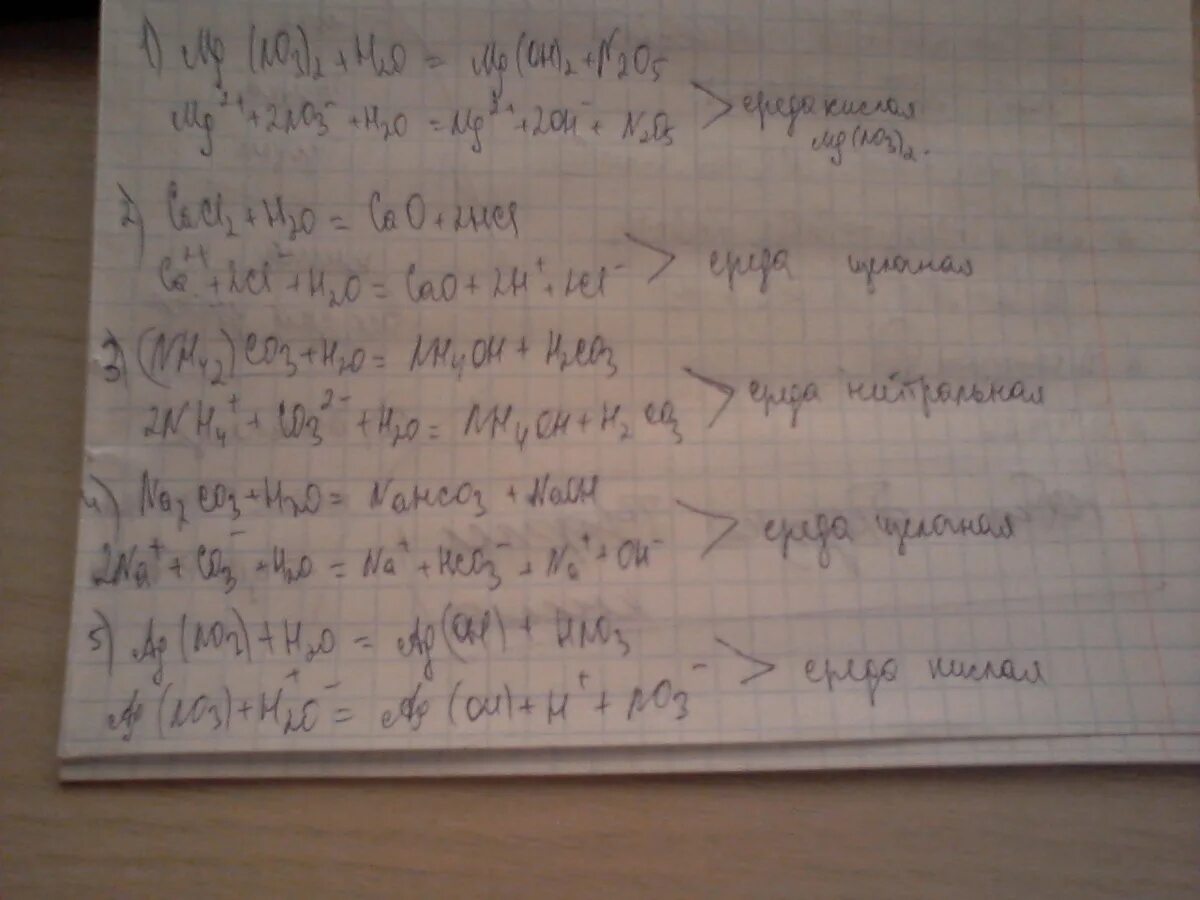 1) Mg(NO3)2 + H2O = Mg(OH)2 + N2O5
Mg²⁺ + 2NO3⁻ + H2O = Mg²⁺ + 2OH⁻ + N2O5 > среда кислая
Mg(NO3)2.
2) CaCl2 + H2O = CaO + 2HCl
Ca⁺⁺ + 2Cl⁻ + H2O = CaO + 2H⁺ + 2Cl⁻ > среда щелочная
3) (NH42)CO3 + H2O = NH4OH + H2CO3
2NH4⁺ + CO3²⁻ + H2O = NH4OH + H2CO3 > среда нейтральная
4) Na2CO3 + H2O = NaHCO3 + NaOH
2Na⁺ + CO3⁻ + H2O = Na⁺ + HCO3⁻ + Na⁺ + OH⁻ > среда щелочная
5) Ag(NO3) + H2O = Ag(OH) + HNO3
Ag(NO3) + H⁺2O⁻ = Ag(OH) + H⁺ + NO3⁻ > среда кислая